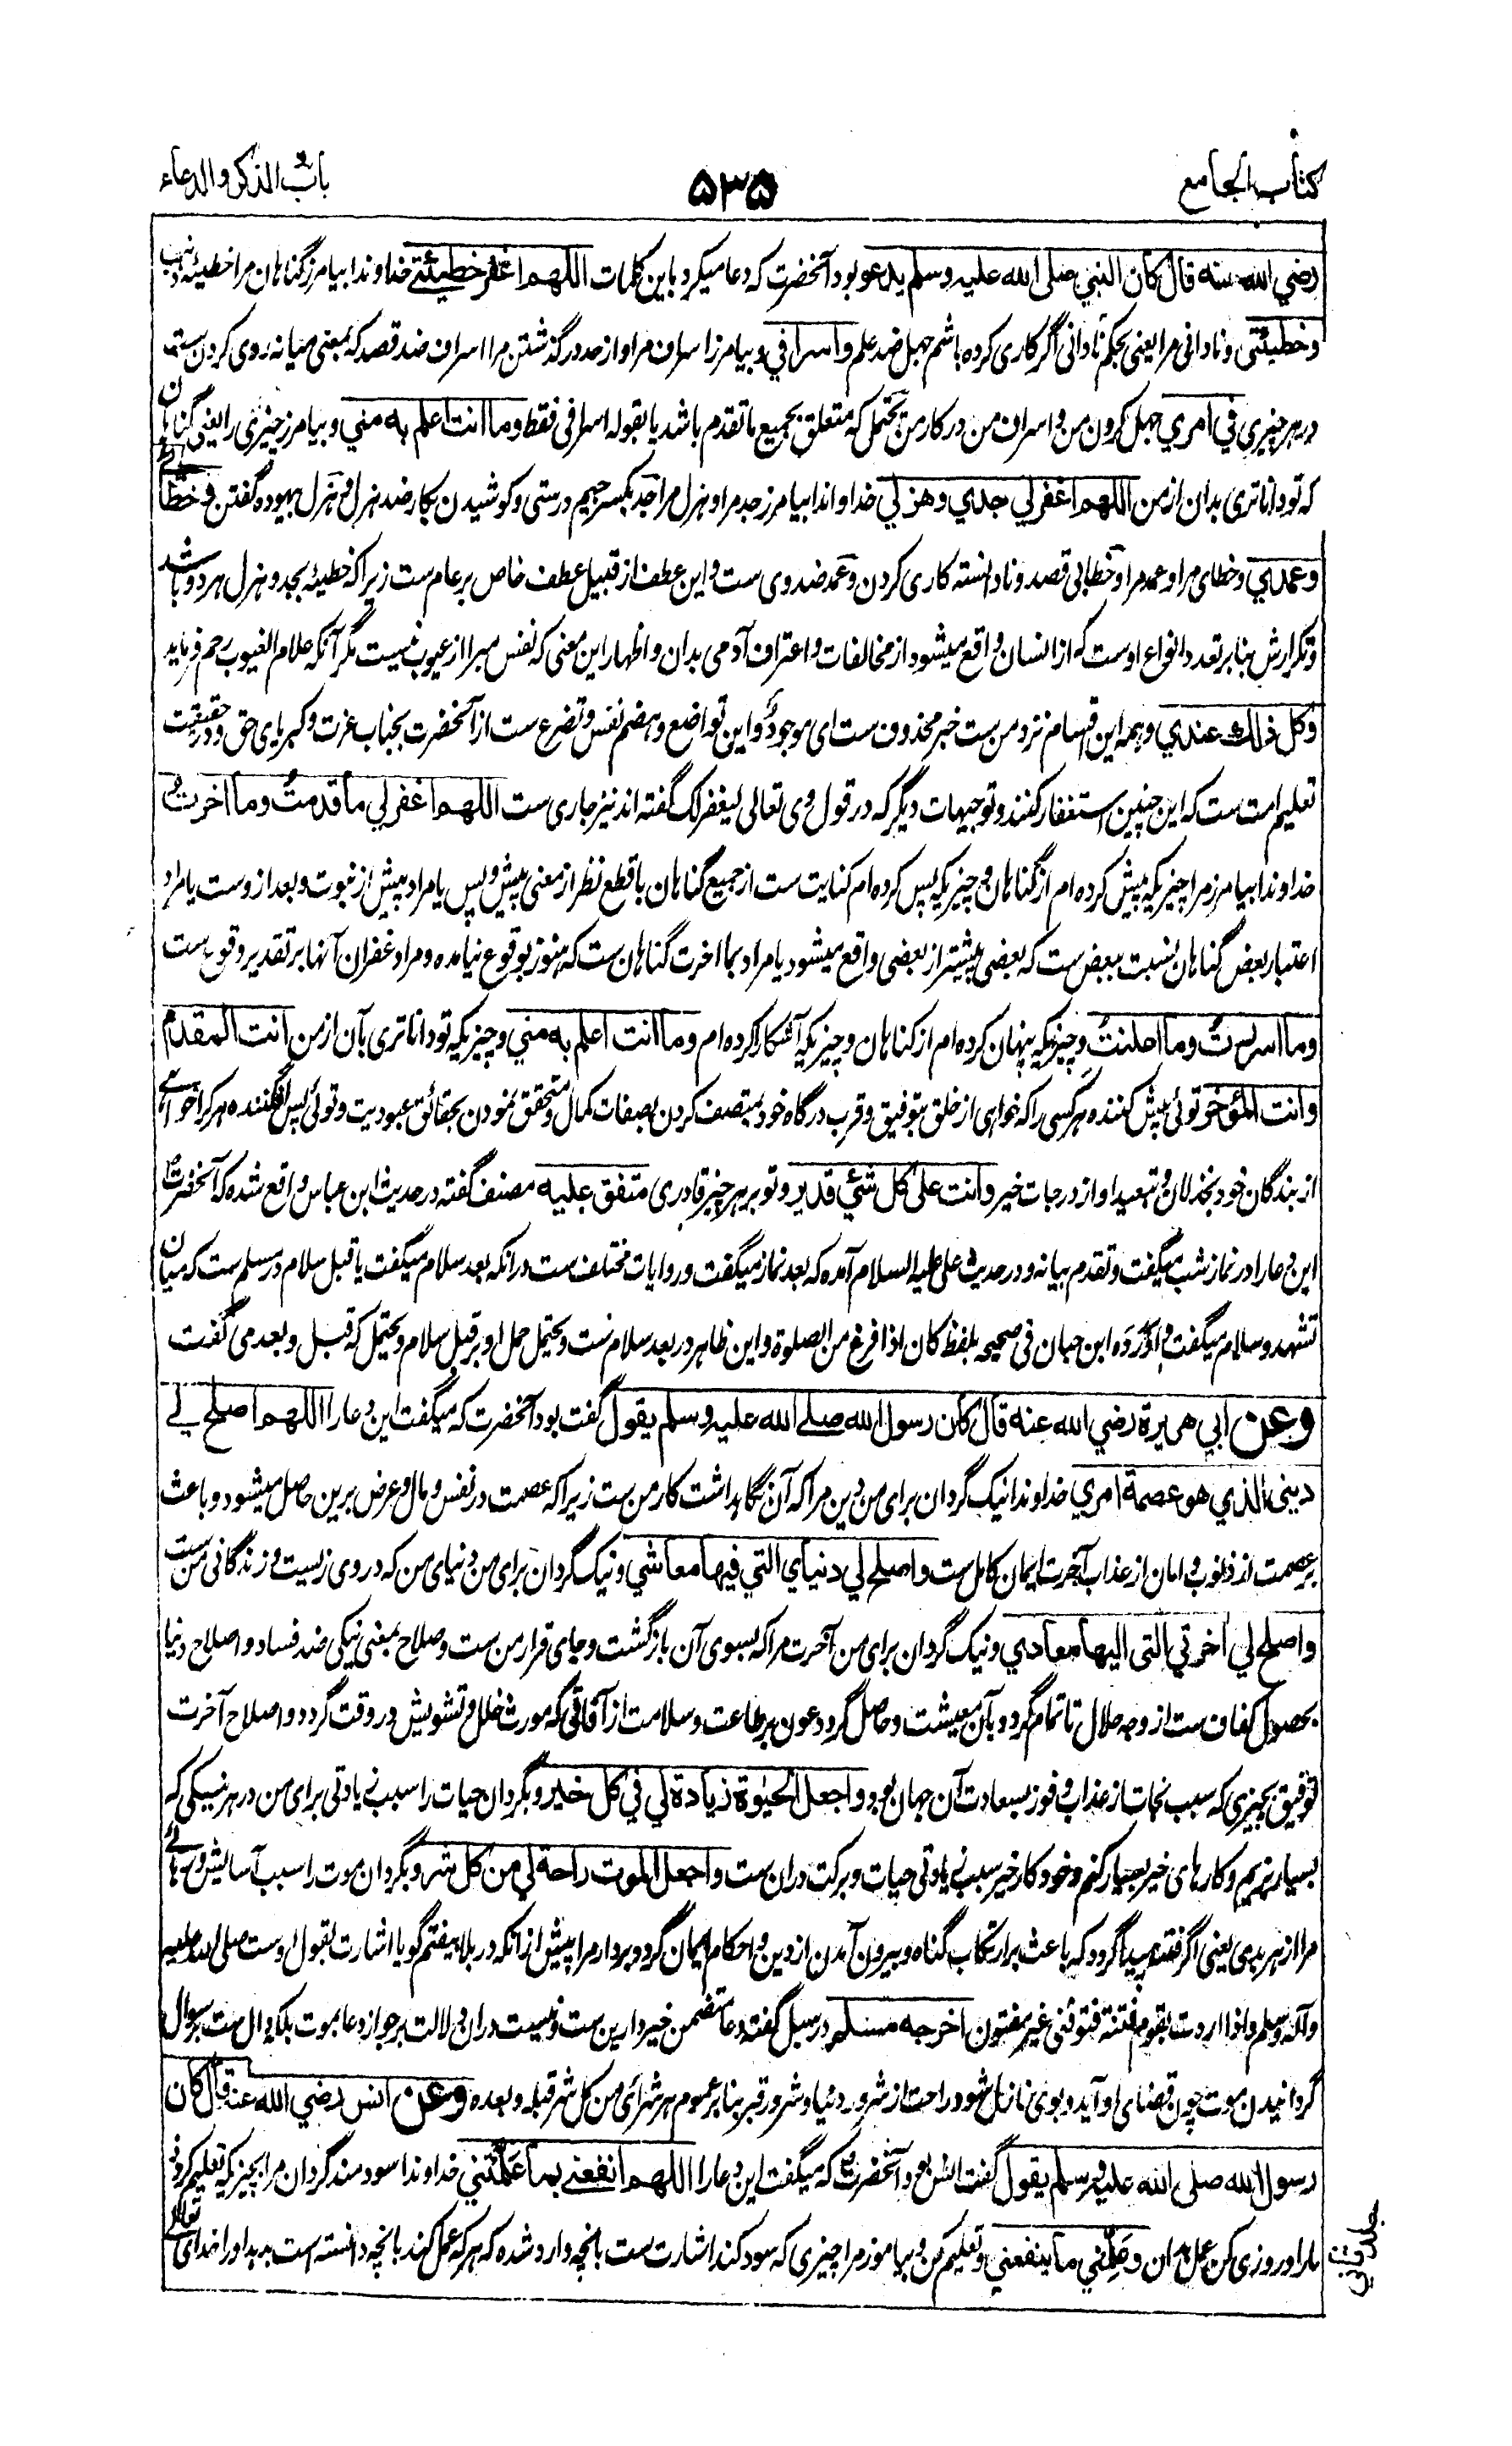 کتاب الجامع
۵۳۵
باب الذکر والدعاء
رضي الله عنه قال کان النبي صلی الله علیه وسلم یدعو بود آنحضرت که دعا میکرد باین کلمات اللهم اغفر خطیئتي خداوندا بیامرز گناهان مرا خطیئه ذنب
وخطیئتي و نادانی مرا یعنی بحکم نادانی اگر کاری کرده باشم جهل ضد علم واسرافي و بیامرز اسراف مرا و از حد در گذشتن مرا اسراف ضد قصد که بمعنی میانه روی کردن ست
در هر چیزی في امري جهل کردن من و اسراف من در کار من یحتمل که متعلق بجمیع ما تقدم باشد یا بقوله اسرافی فقط وما انت اعلم به مني و بیامرز چیزی را یعنی گناهان
که تو داناتری بدان از من اللهم اغفر لي جدي وهزلي خداوندا بیامرز جد مرا و هزل مرا جد بکسر جیم درستی و کوشیدن بکار ضد هزل و هزل بیهوده گفتن وخطائي
وعمدي و خطای مرا و عمد مرا و خطا بی قصد و نادانسته کاری کردن و عمد ضد وی ست و این عطف از قبیل عطف خاص بر عام ست زیرا که خطیئه بجد و هزل هر دو باشد
و تکرارش بنا بر تعدد انواع اوست که از انسان واقع میشود از مخالفات و اعتراف آدمی بدان و اظهار این معنی که نفس مبرا از عیوب نیست مگر آنکه علام الغیوب رحم فرماید
وکل ذلك عندي و همه این اقسام نزد من ست خبر محذوف ست ای موجود و این تواضع و هضم نفس و تضرع ست از آنحضرت بجناب عزت و کبریای حق و در حقیقت
تعلیم امت ست که این چنین استغفار کنند و توجیهات دیگر که در قول وی تعالی لیغفر لک گفته اند نیز جاری ست اللهم اغفر لي ما قدمتُ وما اخرتُ
خداوندا بیامرز مرا چیزیکه پیش کرده ام از گناهان و چیزیکه پس کرده ام کنایت ست از جمیع گناهان با قطع نظر از معنی پیش و پس یا مراد پیش از نبوت و بعد از وست یا مراد
اعتبار بعض گناهان بنسبت ببعض ست که بعضی پیشتر از بعضی واقع میشود یا مراد بما اخرت گناهان ست که هنوز بوقوع نیامده و مراد غفران آنها بر تقدیر وقوع ست
وما اسررتُ وما اعلنتُ و چیزیکه پنهان کرده ام از گناهان و چیزیکه آشکارا کرده ام وما انت اعلم به مني و چیزیکه تو داناتری بآن از من انت المقدم
وانت المؤخر توئی پیش کننده هر کسی را که خواهی از خلق بتوفیق و قرب درگاه خود بمتصف کردن بصفات کمال و متحقق نمودن بحقائق عبودیت و توئی پس افگننده هر کرا خواهی
از بندگان خود بخذلان و تبعید او از درجات خیر وانت علی کل شئي قدیر و تو بر هر چیز قادری متفق علیه مصنف گفته در حدیث ابن عباس واقع شده که آنحضرت
این دعا را در نماز شب میگفت و تقدم بیانه و در حدیث علی علیه السلام آمده که بعد نماز میگفت و روایات مختلف ست درانکه بعد سلام میگفت یا قبل سلام در مسلم ست که میان
تشهد و سلام میگفت و اَوْرَدَه ابن حبان فی صحیحه بلفظ کان اذا فرغ من الصلوة و این ظاهر در بعد سلام ست و یحتمل حمل او بر قبل سلام و یحتمل که قبل و بعد می گفت
وعن أبي هریرة رضي الله عنه قال کان رسول الله صلے الله علیه وسلم یقول گفت بود آنحضرت که میگفت این دعا را اللهم اصلح لے
دیني الذي هو عصمة امري خداوندا نیک گردان برای من دین مرا که آن نگاهداشت کار من ست زیرا که عصمت در نفس و مال و عرض برین حاصل میشود و باعث
بر عصمت از ذنوب و امان از عذاب آخرت ایمان کامل ست واصلح لي دنیاي التي فیها معاشي و نیک گردان برای من دنیای من که در وی زیست و زندگانی من ست
واصلح لي آخرتي التی الیها معادي و نیک گردان برای من آخرت مرا که بسوی آن بازگشت و جای قرار من ست و صلاح بمعنی نیکی ضد فساد و اصلاح دنیا
بحصول کفاف ست از وجه حلال تا تمام گردد بآن معیشت و حاصل گردد عون بر طاعت و سلامت از آفاتی که مورث خلل و تشویش در وقت گردد و اصلاح آخرت
توفیق بچیزی که سبب نجات از عذاب و فوز بسعادت آن جهان بود واجعل الحیوة زیادة لي في کل خیر و بگردان حیات را سبب زیادتی برای من در هر نیکی که
بسیار بزیم و کارهای خیر بسیار کنم و خود کار خیر سبب زیادتی حیات و برکت دران ست واجعل الموت راحة لي من کل شر و بگردان موت را سبب آسایش و رهائی
مرا از هر بدی یعنی اگر فتنه پیدا گردد که باعث بر ارتکاب گناه و بیرون آمدن از دین و احکام ایمان گردد بردار مرا پیش ازانکه در بلا بیفتم گویا اشارت بقول اوست صلی الله علیه
وآله وسلم واذا اردت بقوم فتنة فتوفنی غیر مفتون اخرجه مسلم در سبل گفته دعا متضمن خیر دارین ست و نیست دران دلالت بر جواز دعا بموت بلکه دال ست بر سوال
گردانیدن موت چون قضای او آید و بوی نازل شود راحت از شرور دنیا و شرور قبر بنا بر عموم هر شر ای من کل شر قبله و بعده وعن انس رضي الله عنه قال کان
رسول الله صلی الله علیه وسلم یقول گفت انس بود آنحضرت که میگفت این دعا را اللهم انفعنے بما عَلَّمْتَني خداوندا سودمند گردان مرا بچیزیکه تعلیم کردی
مارا و روزی کن عمل بدان وعَلِّمْني ما ینفعني و تعلیم کن و بیاموز مرا چیزی که سود کند اشارت ست بانچه وارد شده که هر که عمل کند بانچه دانسته است بدهد او را خدای تعالی
جلد ثاني